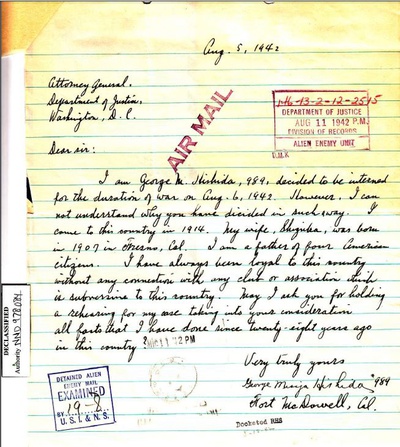 Aug. 5, 1942
Attorney General.
Department of Justice,
Washington, D. C.
AIR MAIL
146-13-2-12-2515
DEPARTMENT OF JUSTICE
AUG 11 1942 P.M.
DIVISION OF RECORDS
ALIEN ENEMY UNIT
Dear sir:
I am George M. Hishida, 989, decided to be interned
for the duration of war on Aug. 6, 1942. However, I can
not understand why you have decided in such way. I
come to this country in 1914. My wife, Shizuka, was born
in 1907 in Cal. I am a father of four American
citizens. I have always been loyal to this country
without any connection with any club or association which
is subversive to this country. May I ask you for holding
a rehearing for my case taking into your consideration
all facts that I have done since twenty eight years ago
in this country?
Very truly yours
George Hishida 989
Fort McDowell, Cal.
DECLASSIFIED
Authority
DETAINED ALIEN
ENEMY MAIL
EXAMINED
BY 19-8
U. S. I. & N. S.
Docketed RHS